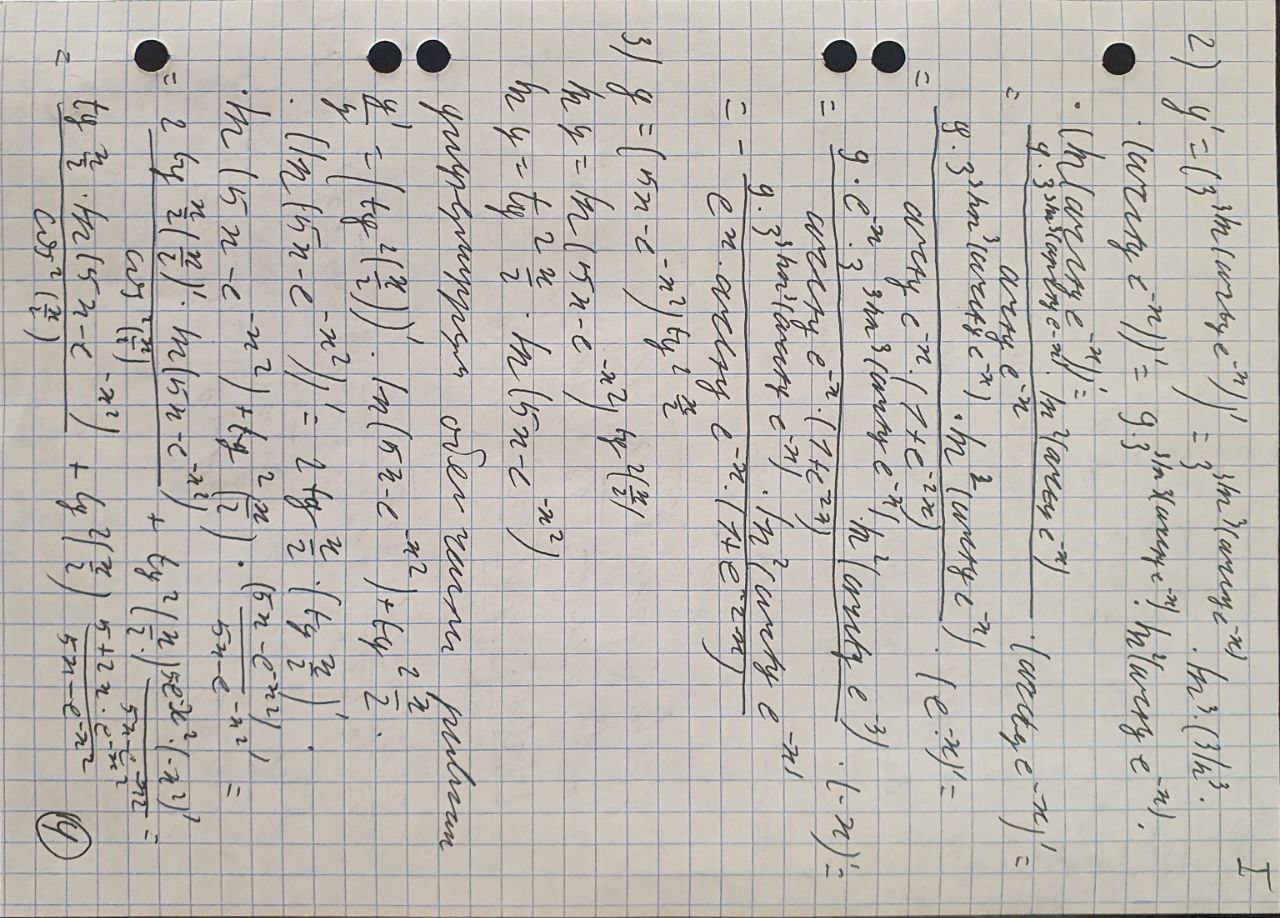 I
2) y' = (3^{3ln(arctg e^{-x})})' = 3^{3ln^3(arctg e^{-x})} · ln3 · (3ln^3 ·
· (arctg e^{-x}))' = 9·3^{3ln^3(arctg e^{-x})} · ln^2(arctg e^{-x}) ·
· (ln(arctg e^{-x}))' =
= \frac{9·3^{3ln^3(arctg e^{-x})} · ln^2(arctg e^{-x})}{arctg e^{-x}} · (arctg e^{-x})' =
= \frac{9·3^{3ln^3(arctg e^{-x})} · ln^2(arctg e^{-x})}{arctg e^{-x} · (1+e^{-2x})} · (e^{-x})' =
= \frac{9·e^{-x}·3^{3ln^3(arctg e^{-x})} · ln^2(arctg e^{-3})}{arctg e^{-x} · (1+e^{-2x})} · (-x)' =
= - \frac{9·3^{3ln^3(arctg e^{-x})} · ln^2(arctg e^{-x})}{e^x · arctg e^{-x} · (1+e^{-2x})}
3) y = (5x-e^{-x^2})^{tg^2 \frac{x}{2}}
ln y = ln(5x-e^{-x^2})^{tg^2(\frac{x}{2})}
ln y = tg^2 \frac{x}{2} · ln(5x-e^{-x^2})
обе части
\frac{y'}{y} = (tg^2(\frac{x}{2}))' · ln(5x-e^{-x^2}) + tg^2 \frac{x}{2} ·
· (ln(5x-e^{-x^2}))' = 2 tg \frac{x}{2} · (tg \frac{x}{2})' ·
· ln(5x-e^{-x^2}) + tg^2(\frac{x}{2}) · \frac{(5x-e^{-x^2})'}{5x-e^{-x^2}} =
= \frac{2 tg \frac{x}{2}(\frac{x}{2})' · ln(5x-e^{-x^2})}{cos^2(\frac{x}{2})} + tg^2(\frac{x}{2}) \frac{5e^{-x^2}·(-x^2)'}{5x-e^{-x^2}} =
= \frac{tg \frac{x}{2} · ln(5x-e^{-x^2})}{cos^2(\frac{x}{2})} + tg^2(\frac{x}{2}) \frac{5+2x·e^{-x^2}}{5x-e^{-x^2}}
4